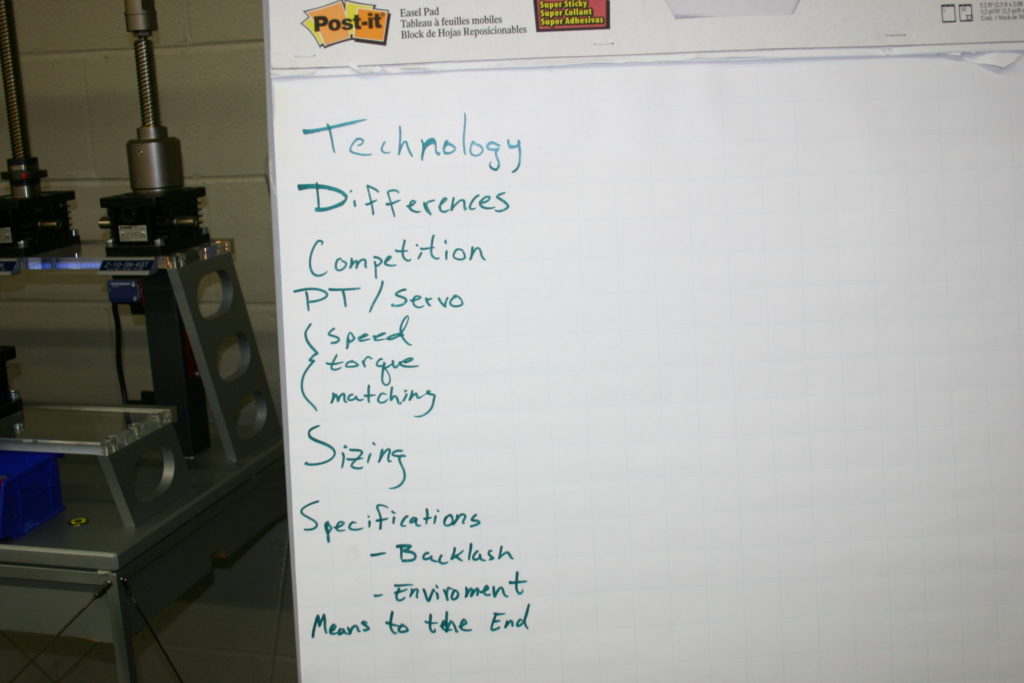 Post-it
Easel Pad
Tableau à feuilles mobiles
Block de Hojas Reposicionables
Super Sticky
Super Collant
Super Adhesivas
Technology
Differences
Competition
PT / Servo
speed
torque
matching
Sizing
Specifications
- Backlash
- Enviroment
Means to the End